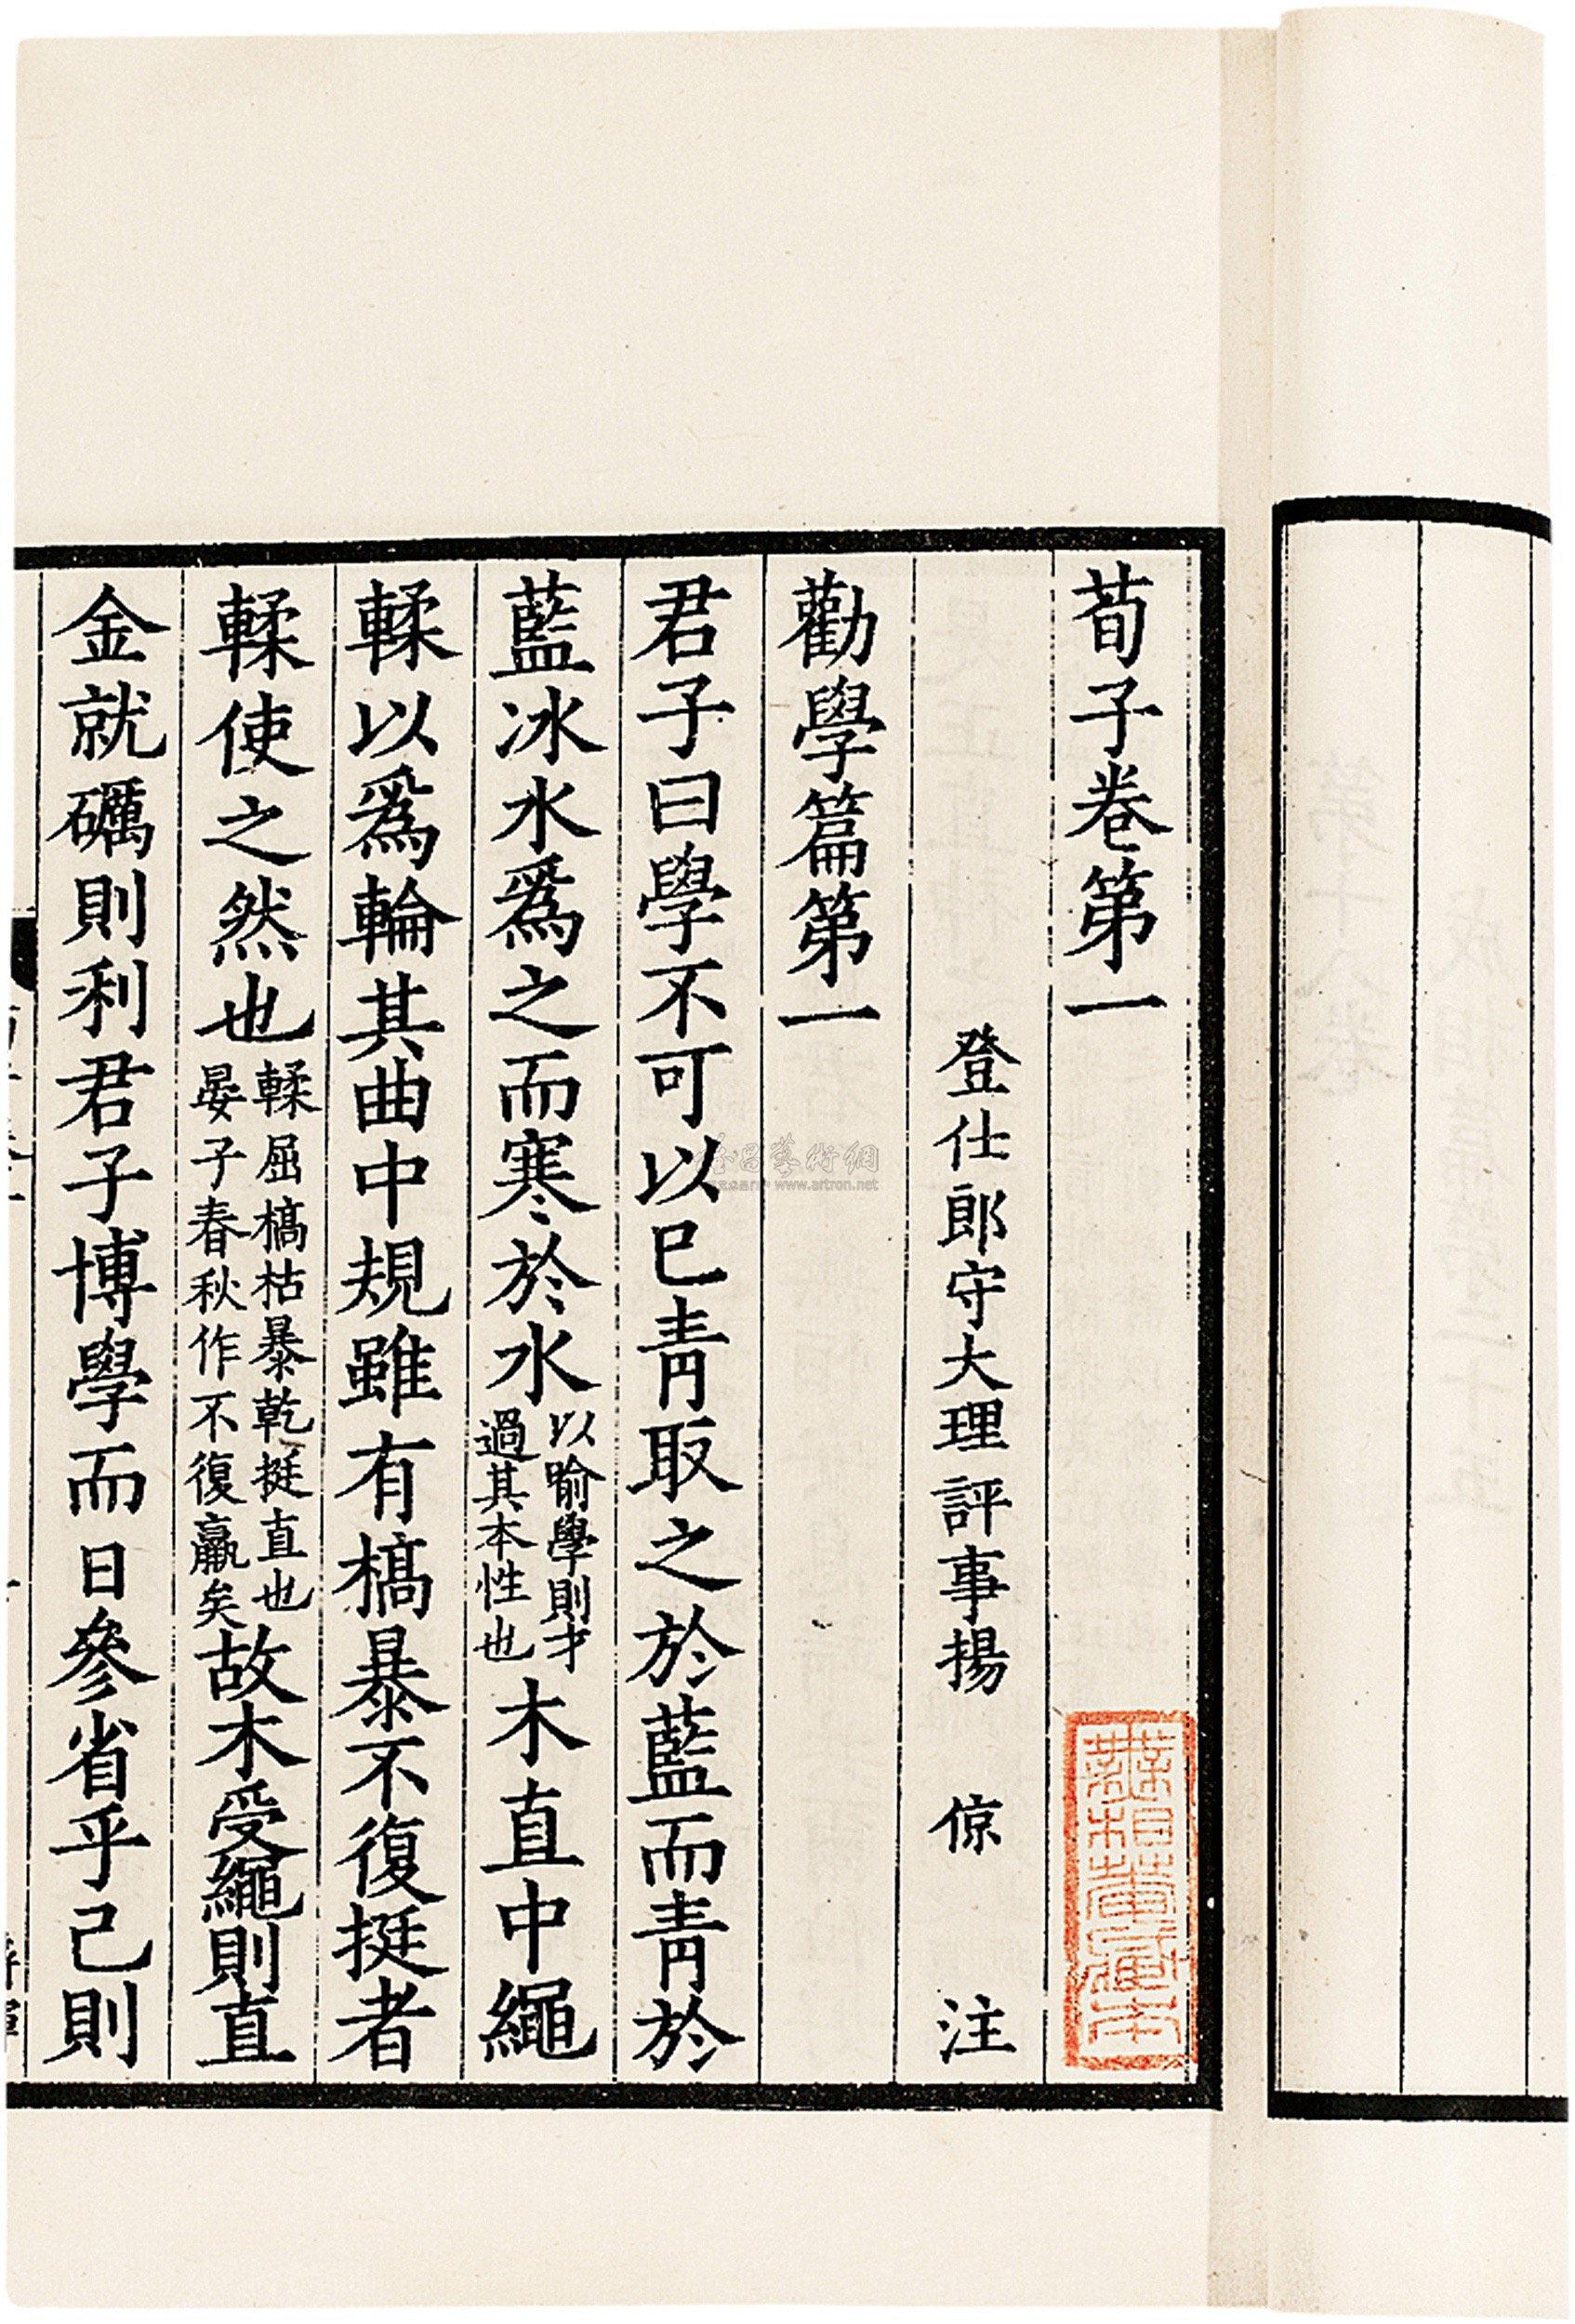 荀子卷第一
登仕郎守大理評事揚　倞　注
勸學篇第一
君子曰學不可以已青取之於藍而青於
藍冰水爲之而寒於水以喻學則才過其本性也木直中繩
輮以爲輪其曲中規雖有槁暴不復挺者
輮使之然也輮屈槁枯暴乾挺直也晏子春秋作不復贏矣故木受繩則直
金就礪則利君子博學而日參省乎己則
www.artron.net